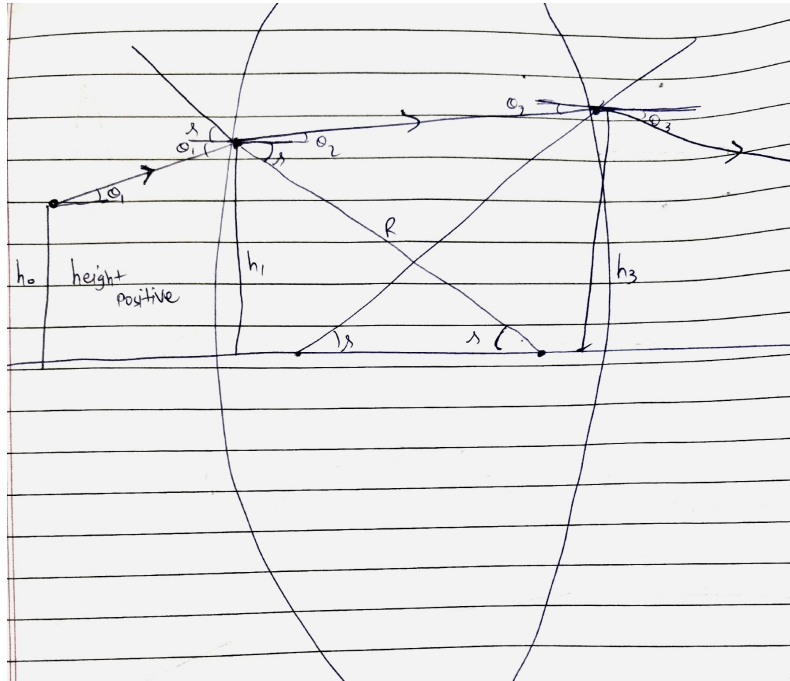 r
θ₁
θ₂
r
θ₂
θ₃
θ₁
R
h₀
height
positive
h₁
h₃
r
r